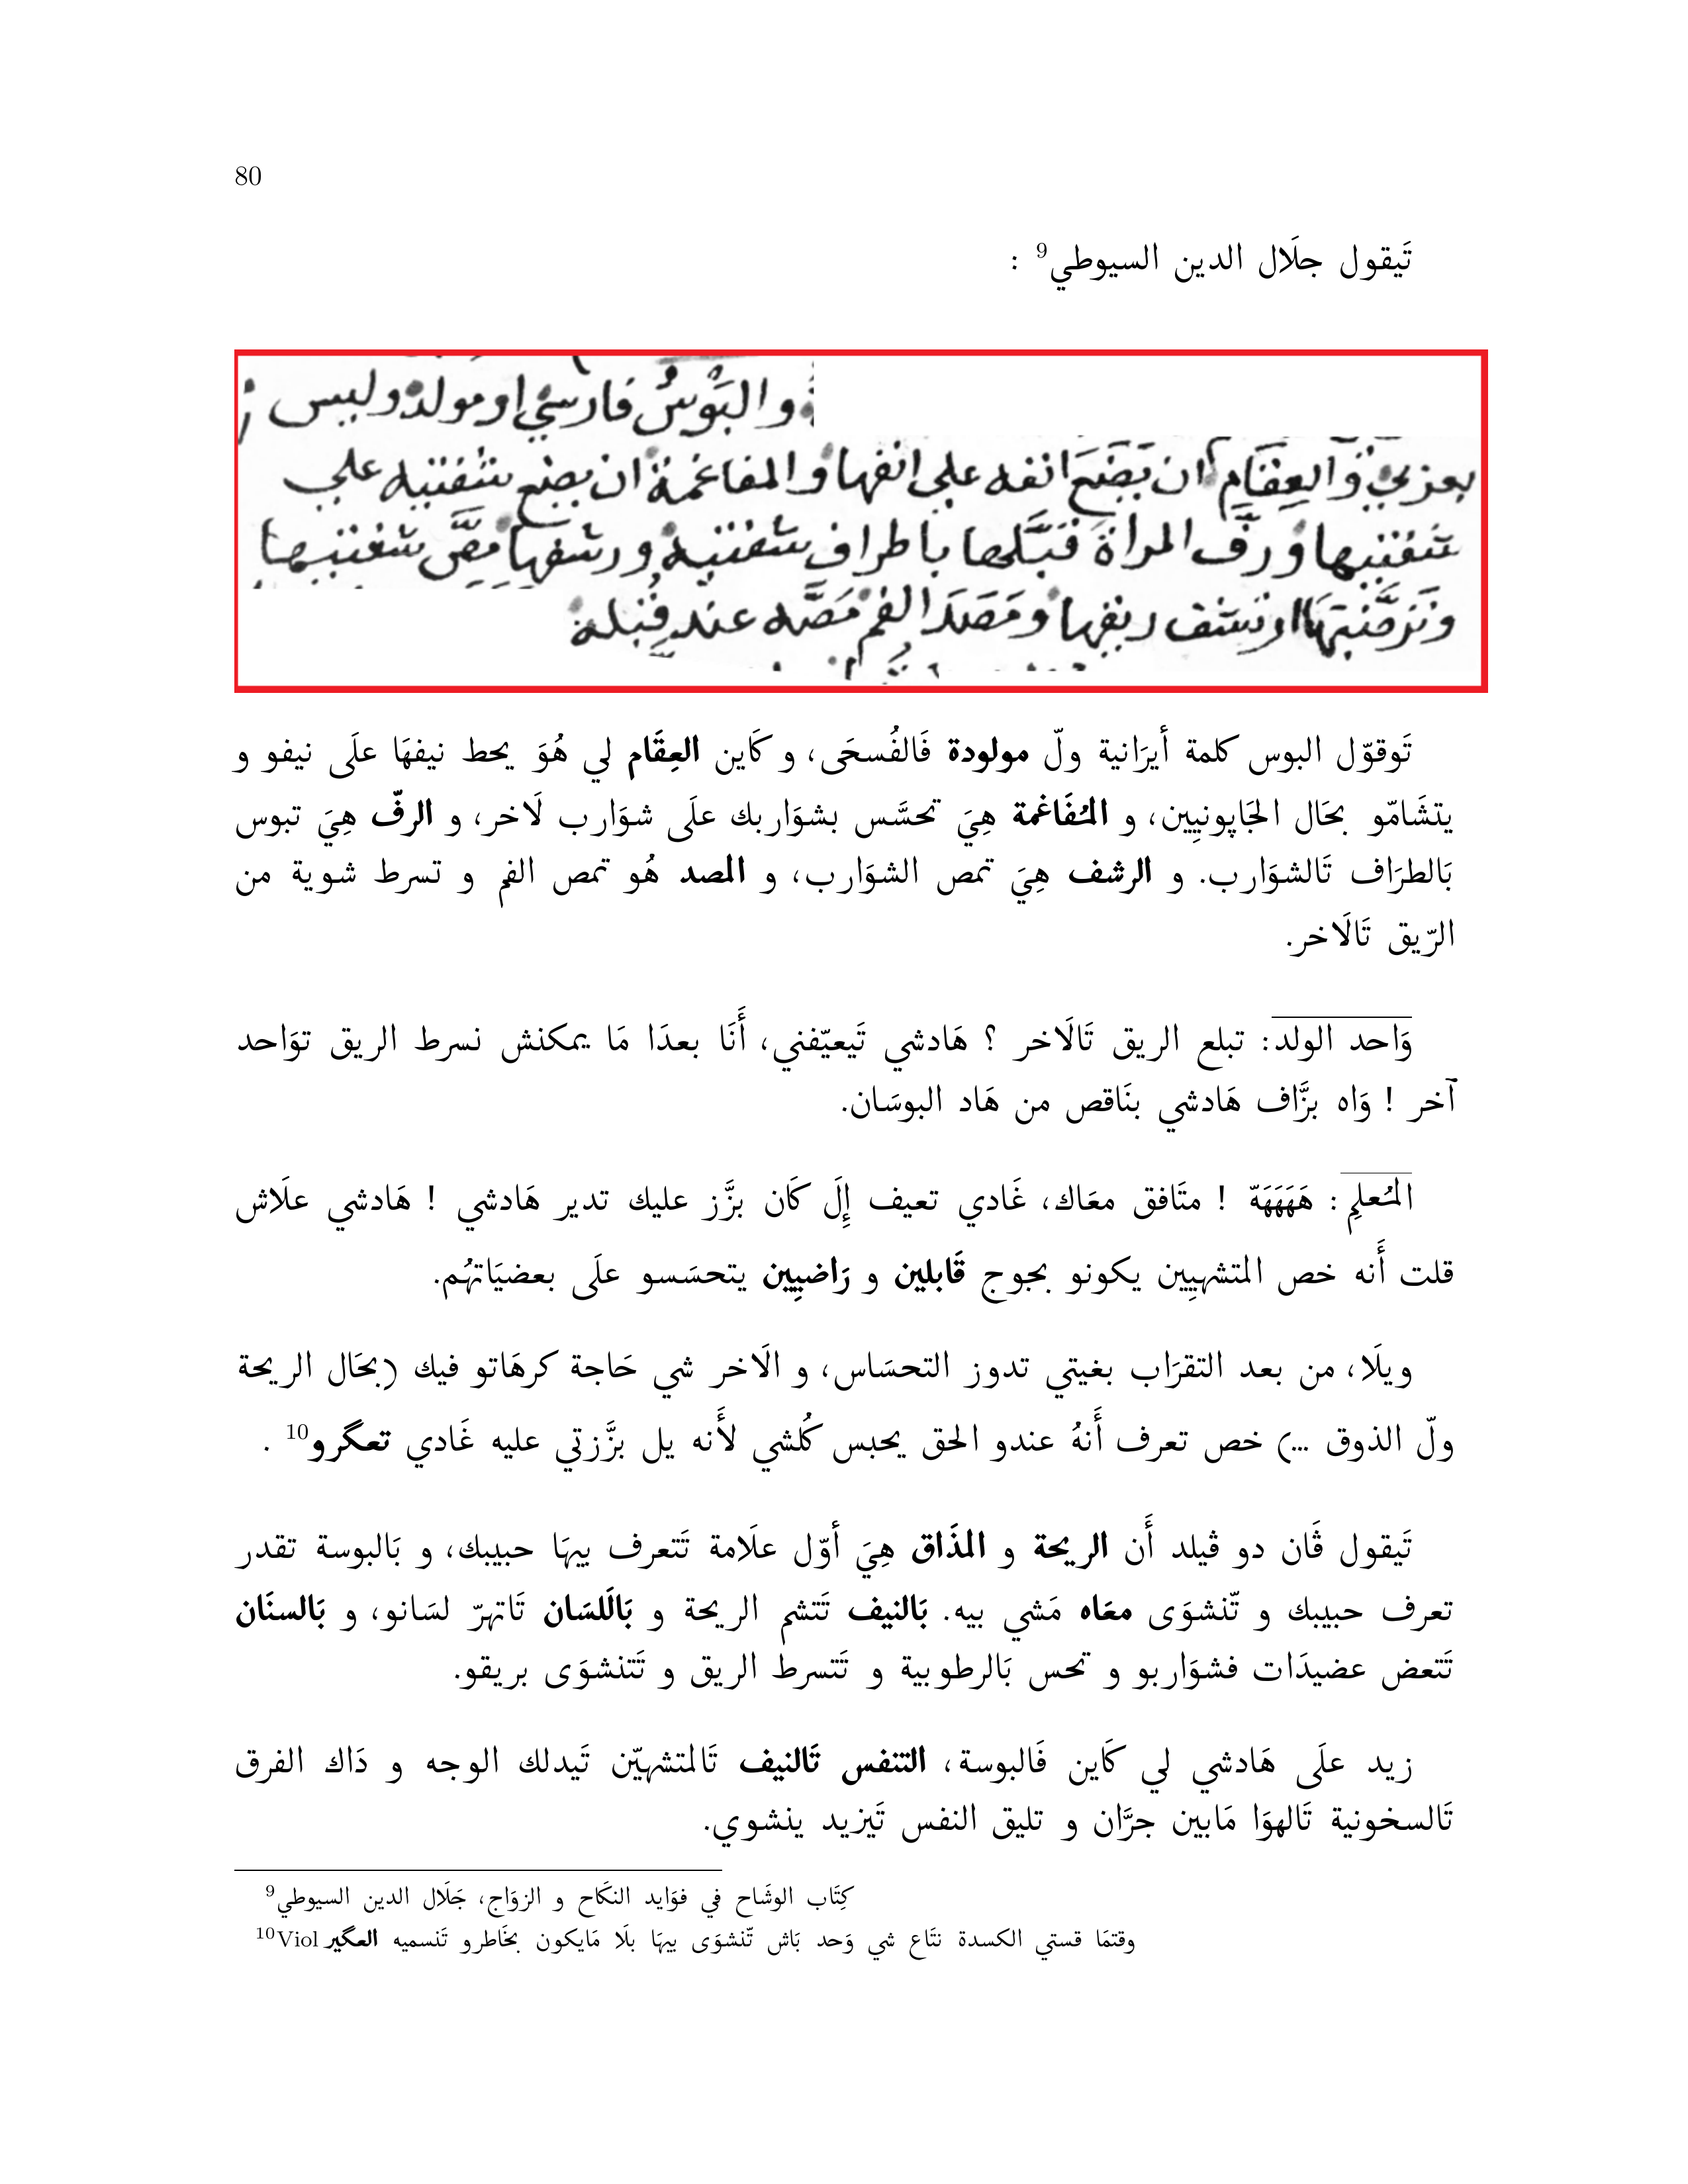 80
تَيقول جلَال الدين السيوطي9 :
والبَوْسُ فارسيٌ او مولد وليس
بعربيٍ والعِقَام ان يَضَعَ انفه علي انفها والمفاغمة ان يضع شفتيه علي
شفتيها ورفَّ المراة قبَّلها باطراف شفتيه ورشفها مصَّ شفتيها
ريقها ومَصَدَ الفم مَصَّه عند قُبلة
تَوقوّل البوس كلمة أيرَانية ولّ مولودة فَالفُسحَى، و كَاين العِقَام لي هُوَ يحط نيفهَا علَى نيفو و
يتشَامّو بحَال الجَاپونيِين، و المُفَاغمة هِيَ تحسَّس بشوَاربك علَى شوَارب لَاخر، و الرفّ هِيَ تبوس
بَالطرَاف تَالشوَارب. و الرشف هِيَ تمص الشوَارب، و المصد هُو تمص الفم و تسرط شوية من
الرّيق تَالَاخر.
وَاحد الولد: تبلع الريق تَالَاخر ؟ هَادشي تَيعيّفني، أَنَا بعدَا مَا يمكنش نسرط الريق توَاحد
آخر ! وَاه بزَّاف هَادشي بنَاقص من هَاد البوسَان.
المُعلِم : هَهَهَهَهّ ! متَافق معَاك، غَادي تعيف إِلَ كَان بزَّز عليك تدير هَادشي ! هَادشي علَاش
قلت أَنه خص المتشهيِين يكونو بجوج قَابلين و رَاضيِين يتحسَسو علَى بعضيَاتهُم.
ويلَا، من بعد التقرَاب بغيتي تدوز التحسَاس، و الَاخر شي حَاجة كرهَاتو فيك (بحَال الريحة
ولّ الذوق ...) خص تعرف أَنهُ عندو الحق يحبس كُلشي لأَنه يل بزَّزتي عليه غَادي تعڭرو10 .
تَيقول ڤَان دو ڤيلد أَن الريحة و المذَاق هِيَ أوّل علَامة تَتعرف بيهَا حبيبك، و بَالبوسة تقدر
تعرف حبيبك و تّنشوَى معَاه مَشي بيه. بَالنيف تَتشم الريحة و بَالَلسَان تَاتهرّ لسَانو، و بَالسنَان
تَتعض عضيدَات فشوَاربو و تحس بَالرطوبية و تَتسرط الريق و تَتنشوَى بريقو.
زيد علَى هَادشي لي كَاين فَالبوسة، التنفس تَالنيف تَالمتشهيّين تَيدلك الوجه و دَاك الفرق
تَالسخونية تَالهوَا مَابين جرَّان و تليق النفس تَيزيد ينشوي.
9كِتَاب الوشَاح في فوَايد النكَاح و الزوَاج، جَلَال الدين السيوطي
10وقتمَا قستي الكسدة نتَاع شي وَحد بَاش تّنشوَى بيهَا بلَا مَايكون بخَاطرو تَنسميه العڭير Viol